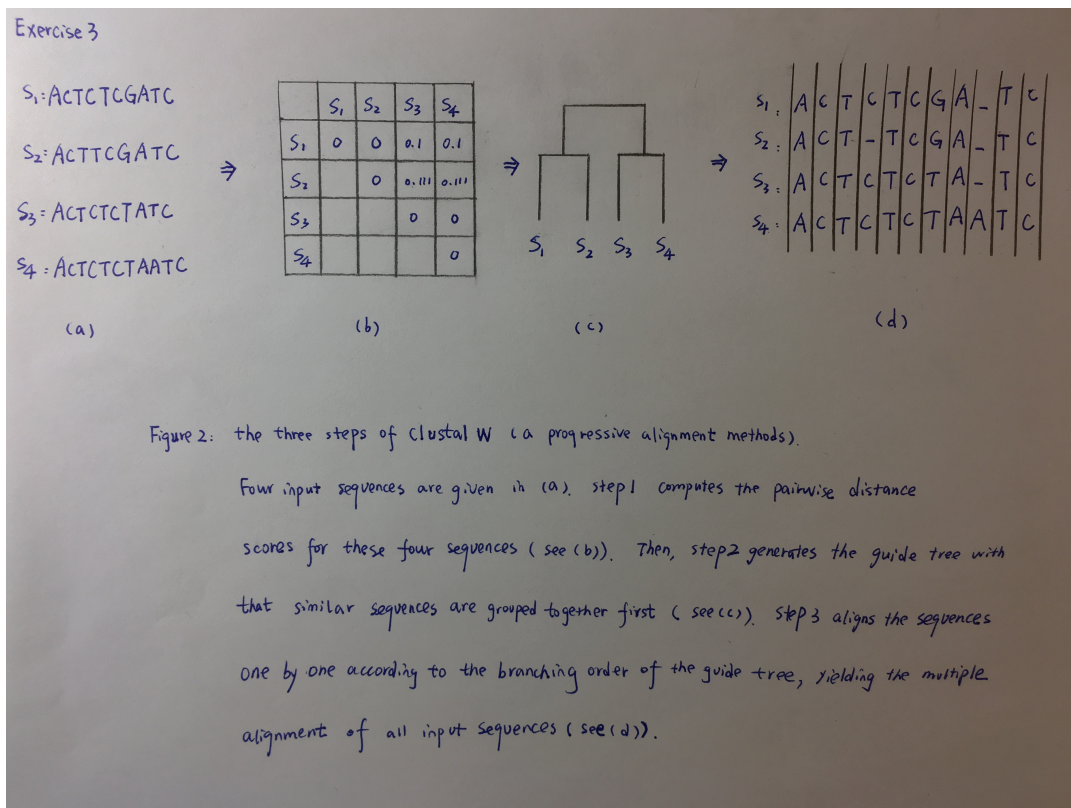 Exercise 3
S1: ACTCTCGATC
S2: ACTTCGATC
S3: ACTCTCTATC
S4: ACTCTCTAATC
(a)
S1 S2 S3 S4
S1 0 0 0.1 0.1
S2 0 0.111 0.111
S3 0 0
S4 0
(b)
S1 S2 S3 S4
(c)
S1: A C T C T C G A _ T C
S2: A C T - T C G A _ T C
S3: A C T C T C T A - T C
S4: A C T C T C T A A T C
(d)
Figure 2: the three steps of Clustal W (a progressive alignment methods).
Four input sequences are given in (a). step1 computes the pairwise distance
scores for these four sequences (see (b)). Then, step2 generates the guide tree with
that similar sequences are grouped together first (see (c)). step 3 aligns the sequences
one by one according to the branching order of the guide tree, yielding the multiple
alignment of all input sequences (see (d)).